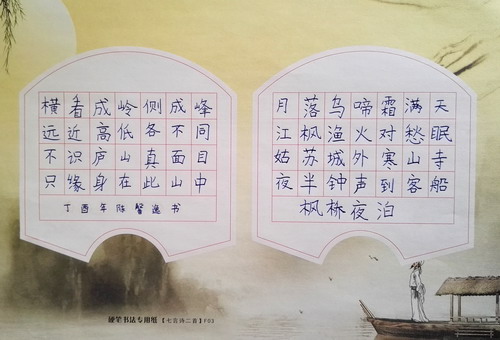 横看成岭侧成峰
远近高低各不同
不识庐山真面目
只缘身在此山中
丁酉年陈逸书
月落乌啼霜满天
江枫渔火对愁眠
姑苏城外寒山寺
夜半钟声到客船
枫桥夜泊
硬笔书法专用纸【七言诗二首】F03